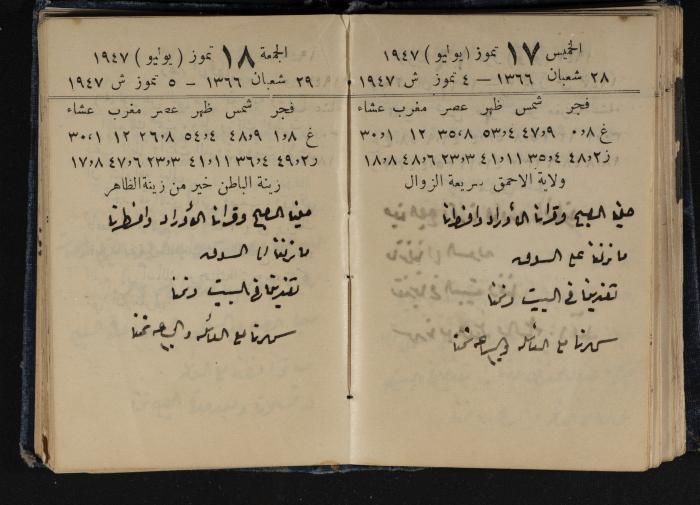 الخميس ١٧ تموز (يوليو) ١٩٤٧
٢٨ شعبان ١٣٦٦ — ٤ تموز ش ١٩٤٧
فجر شمس ظهر عصر مغرب عشاء
غ ٨٫٠ ٤٧٫٩ ٥٣٫٤ ٣٥٫٨ ١٢ ٣٠٫١
ز ٤٨٫٢ ٣٥٫٤ ٤١٫١١ ٢٣٫٣ ٤٨٫٦ ١٨٫٨
ولاية الاحمق سريعة الزوال
صلينا الصبح وقرانا الأوراد وافطرنا
ما نزلنا على السوق
تغدينا في البيت ونمنا
سهرنا مع العائله نمنا
الجمعة ١٨ تموز (يوليو) ١٩٤٧
٢٩ شعبان ١٣٦٦ — ٥ تموز ش ١٩٤٧
فجر شمس ظهر عصر مغرب عشاء
غ ٨٫١ ٤٨٫٩ ٥٤٫٤ ٢٦٫٨ ١٢ ٣٠٫١
ز ٤٩٫٢ ٣٦٫٤ ٤١٫١١ ٢٣٫٣ ٤٧٫٦ ١٧٫٨
زينة الباطن خير من زينة الظاهر
صلينا الصبح وقرانا الأوراد وافطرنا
ما نزلنا السوق
تغدينا في البيت ونمنا
سهرنا مع العائله نمنا